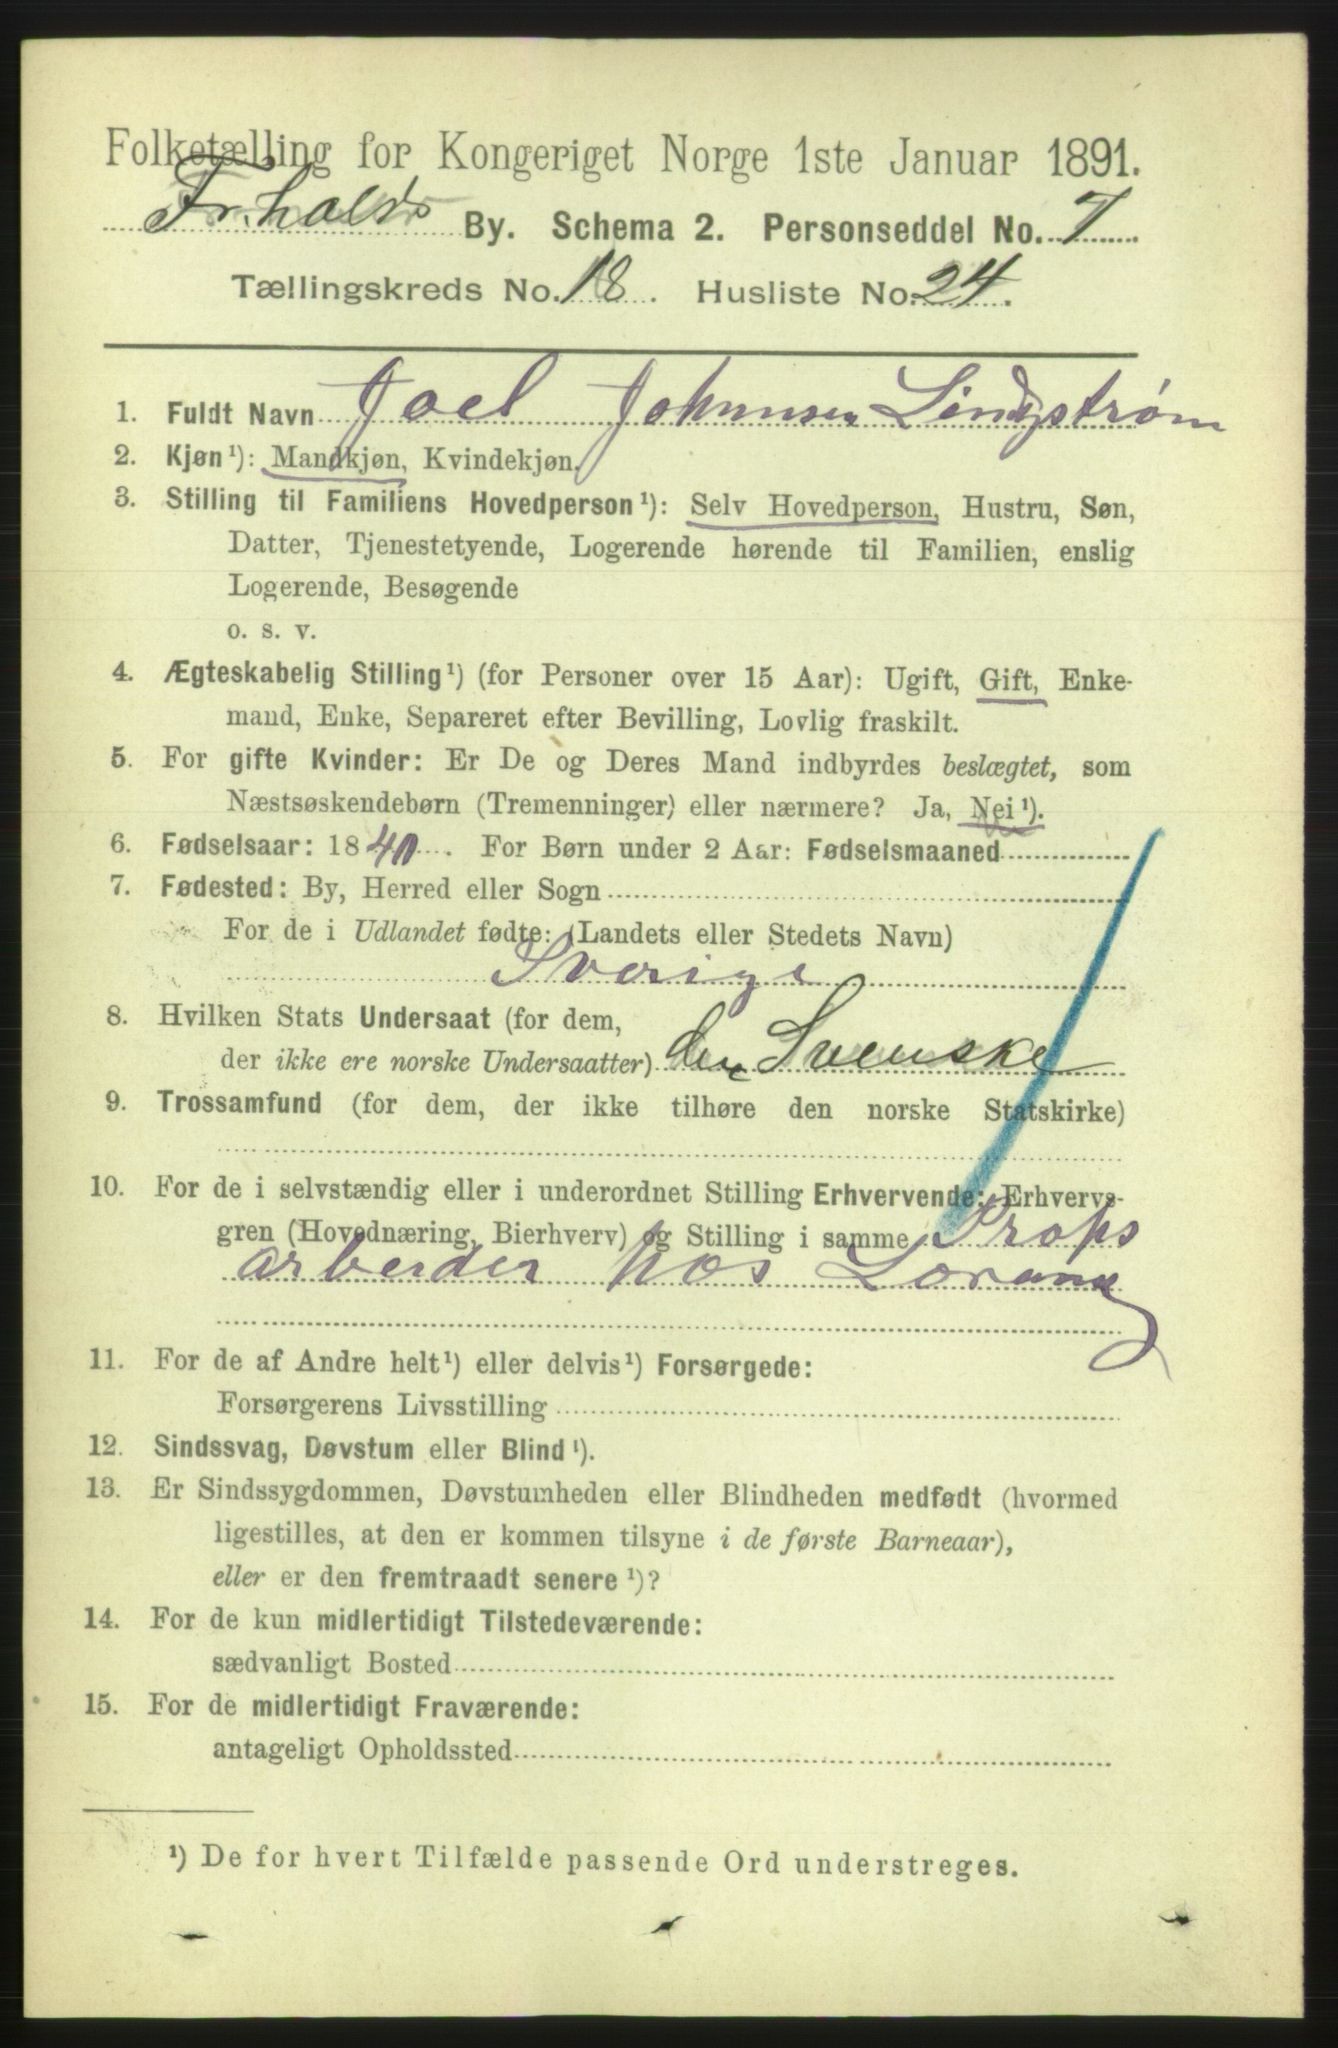 Folketælling for Kongeriget Norge 1ste Januar 1891.
Fr.halds By. Schema 2. Personseddel No. 7
Tællingskreds No. 18. Husliste No. 24.
1. Fuldt Navn Joel Johannsen Lindgstrøm
2. Kjøn¹): Mandkjøn, Kvindekjøn.
3. Stilling til Familiens Hovedperson¹): Selv Hovedperson, Hustru, Søn,
Datter, Tjenestetyende, Logerende hørende til Familien, enslig
Logerende, Besøgende
o. s. v.
4. Ægteskabelig Stilling¹) (for Personer over 15 Aar): Ugift, Gift, Enke-
mand, Enke, Separeret efter Bevilling, Lovlig fraskilt.
5. For gifte Kvinder: Er De og Deres Mand indbyrdes beslægtet, som
Næstsøskendebørn (Tremenninger) eller nærmere? Ja, Nei¹).
6. Fødselsaar: 1840. For Børn under 2 Aar: Fødselsmaaned
7. Fødested: By, Herred eller Sogn
For de i Udlandet fødte: (Landets eller Stedets Navn)
Sverige
8. Hvilken Stats Undersaat (for dem,
der ikke ere norske Undersaatter) den Svenske
9. Trossamfund (for dem, der ikke tilhøre den norske Statskirke)
10. For de i selvstændig eller i underordnet Stilling Erhvervende: Erhvervs-
gren (Hovednæring, Bierhverv) og Stilling i samme Props
arbeider hos
11. For de af Andre helt¹) eller delvis¹) Forsørgede:
Forsørgerens Livsstilling
12. Sindssvag, Døvstum eller Blind¹).
13. Er Sindssygdommen, Døvstumheden eller Blindheden medfødt (hvormed
ligestilles, at den er kommen tilsyne i de første Barneaar),
eller er den fremtraadt senere¹)?
14. For de kun midlertidigt Tilstedeværende:
sædvanligt Bosted
15. For de midlertidigt Fraværende:
antageligt Opholdssted
¹) De for hvert Tilfælde passende Ord understreges.